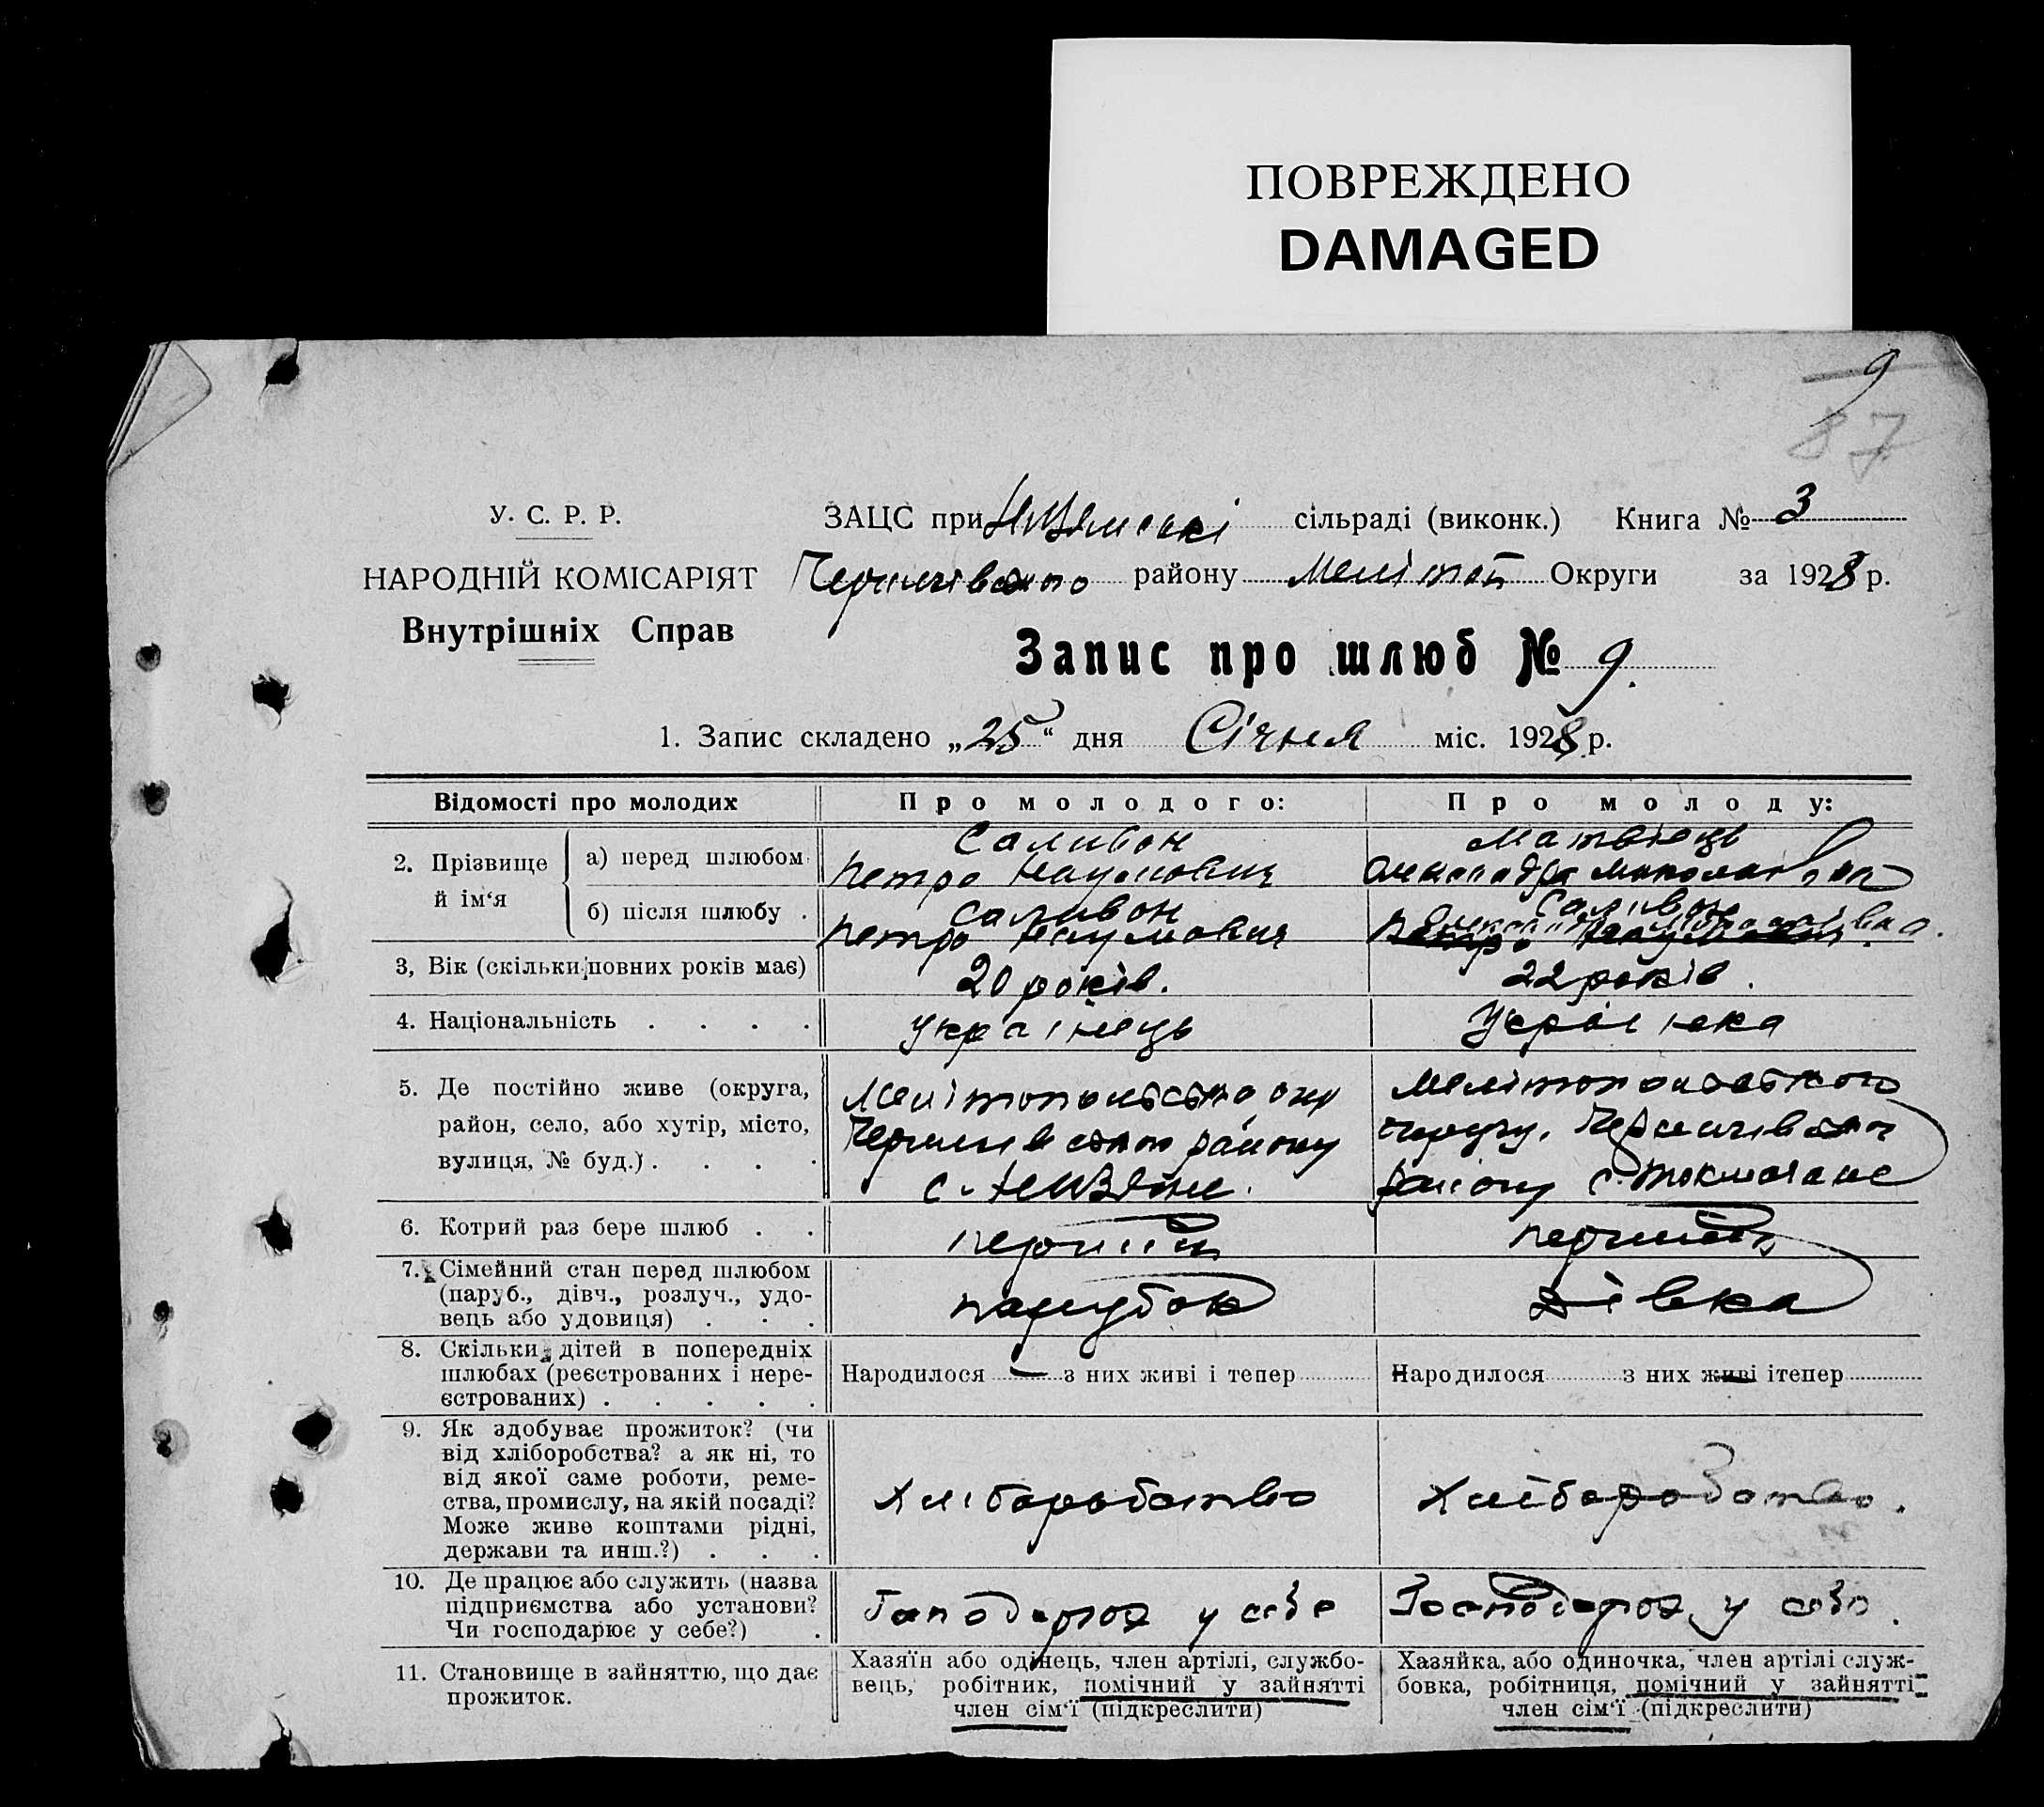 ПОВРЕЖДЕНО
DAMAGED
9
87
У. С. Р. Р.
НАРОДНІЙ КОМІСАРІЯТ
Внутрішніх Справ
ЗАЦС при сільраді (виконк.) Книга № 3
району Меліт Округи за 1928 р.
Запис про шлюб № 9.
1. Запис складено „25“ дня Січня міс. 1928 р.
Відомості про молодих
Про молодого:
Про молоду:
2. Прізвище й ім‘я
а) перед шлюбом
Саливон
Петро Наумович
Матвієць
Олександра
б) після шлюбу .
Саливон
Петро Наумович
Саливон
3, Вік (скільки повних років має)
20 років.
22 років.
4. Національність . . . .
Українець
Українка
5. Де постійно живе (округа,
район, село, або хутір, місто,
вулиця, № буд.) . . . .
Мелітопольського окр
району
с.
Мелітопольського
району с.
6. Котрий раз бере шлюб . .
перший
перший
7. Сімейний стан перед шлюбом
(паруб., дівч., розлуч., удо-
вець або удовиця) . . .
парубок
дівка
8. Скільки дітей в попередніх
шлюбах (реєстрованих і нере-
єстрованих) . . . . .
Народилося — з них живі і тепер
Народилося з них живі ітепер
9. Як здобуває прожиток? (чи
від хліборобства? а як ні, то
від якої саме роботи, реме-
ства, промислу, на якій посаді?
Може живе коштами рідні,
держави та инш.?) . . .
Хліборобство
Хліборобство.
10. Де працює або служить (назва
підприємства або установи?
Чи господарює у себе?) .
у себе
Господарює у себе.
11. Становище в зайняттю, що дає
прожиток.
Хазяїн або одінець, член артілі, службо-
вець, робітник, помічний у зайнятті
член сім‘ї (підкреслити)
Хазяйка, або одиночка, член артілі служ-
бовка, робітниця, помічний у зайнятті
член сім‘ї (підкреслити)